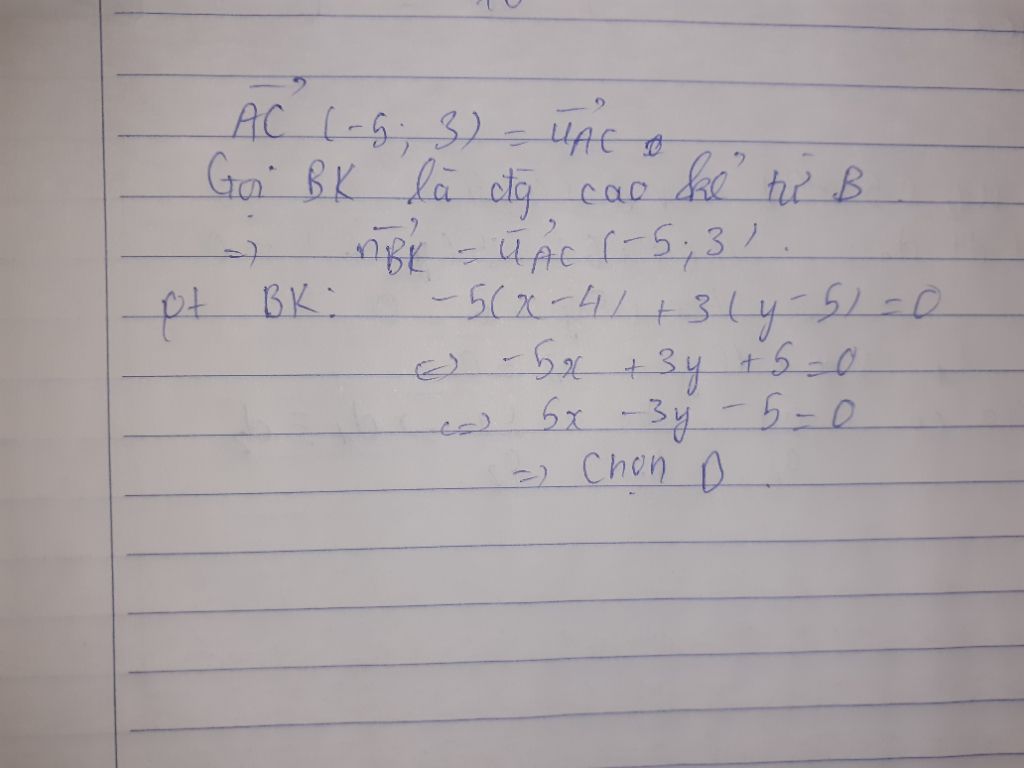 AC (-5; 3) = uAC
Gọi BK là đg cao kẻ từ B
=> nBK = uAC (-5; 3).
pt BK: -5(x-4) + 3(y-5) = 0
<=> -5x + 3y + 5 = 0
<=> 5x - 3y - 5 = 0
=> Chọn D.